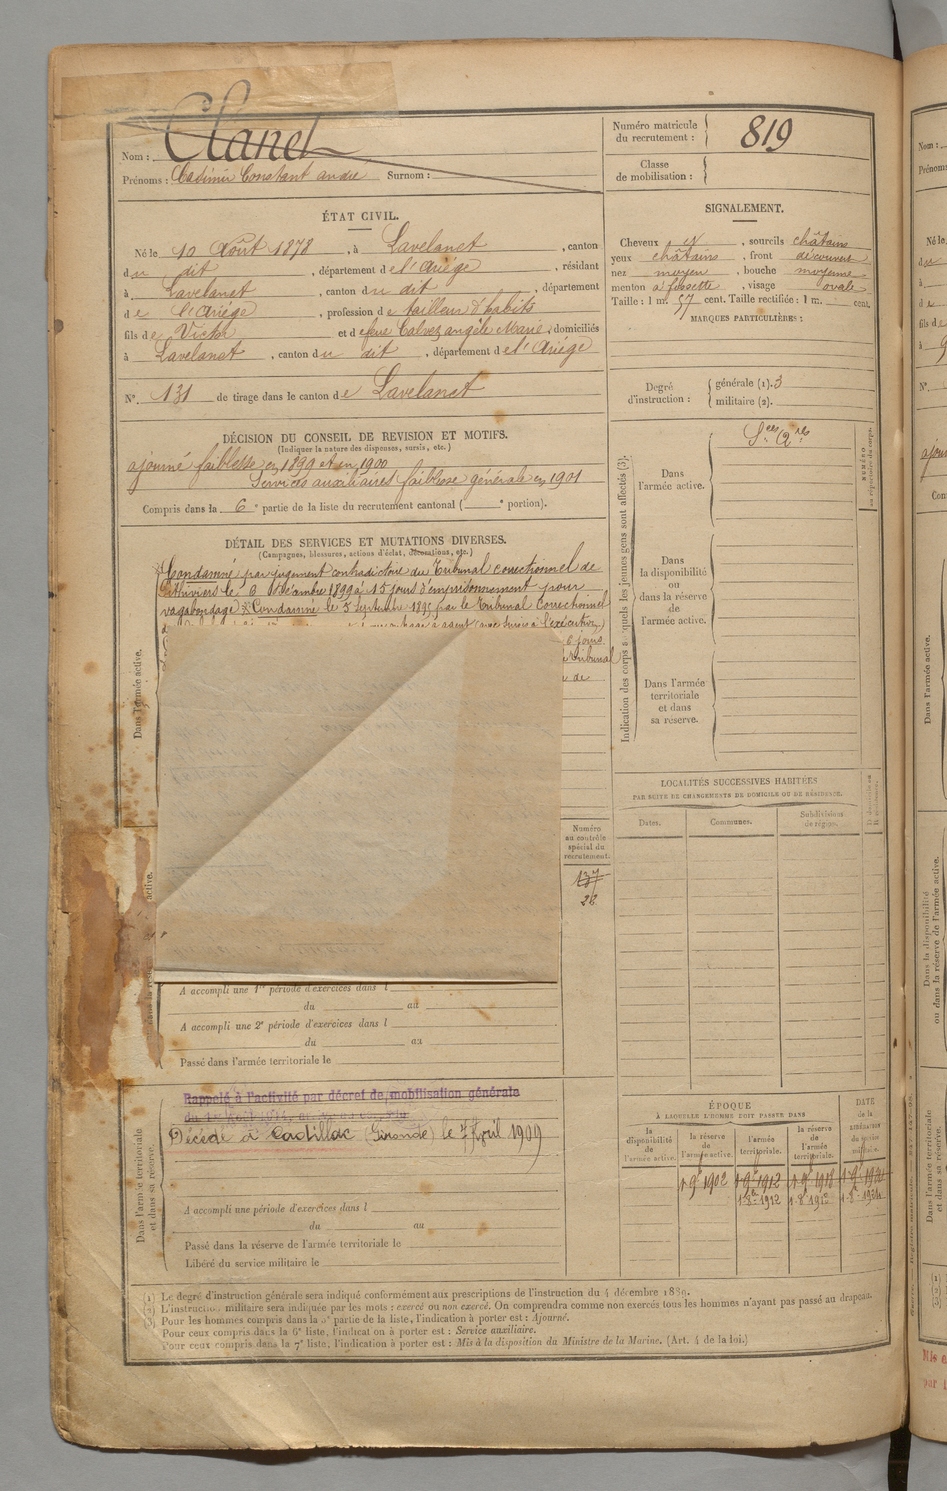 Nom : Clanet
Prénoms : Casimir Constant andré Surnom :
Numéro matricule
du recrutement : 819
Classe
de mobilisation :
ÉTAT CIVIL.
Né le 10 Août 1878, à Lavelanet, canton
du dit, département de l'Ariège, résidant
à Lavelanet, canton du dit, département
de l'Ariège, profession de tailleur d'habits
fils de Victor et de feue Calvez angèle Marie, domiciliés
à Lavelanet, canton du dit, département de l'Ariège
N°. 131 de tirage dans le canton de Lavelanet
SIGNALEMENT.
Cheveux et, sourcils châtains
yeux châtains, front découvert
nez moyen, bouche moyenne
menton à fossette, visage ovale
Taille : 1 m. 57 cent. Taille rectifiée : 1 m. cent.
MARQUES PARTICULIÈRES :
Degré
d'instruction :
générale (1). 3
militaire (2).
DÉCISION DU CONSEIL DE REVISION ET MOTIFS.
(Indiquer la nature des dispenses, sursis, etc.)
ajourné faiblesse en 1899 et en 1900
Services auxiliaires faiblesse générale en 1901
Compris dans la 6e partie de la liste du recrutement cantonal ( e portion).
DÉTAIL DES SERVICES ET MUTATIONS DIVERSES.
(Campagnes, blessures, actions d'éclat, décorations, etc.)
Condamné par jugement contradictoire du Tribunal correctionnel de
le 6 Décembre 1899 à 15 jours d'emprisonnement pour
vagabondage Condamné le 5 Septembre 1895 par le Tribunal Correctionnel
(avec sursis à l'exécution)
6 jours
Tribunal
de
Dans l'armée active.
Numéro
au contrôle
spécial du
recrutement.
137
28
A accompli une 1re période d'exercices dans l
du au
A accompli une 2e période d'exercices dans l
du au
Passé dans l'armée territoriale le
Dans l'armée territoriale
et dans sa réserve.
Rappelé à l'activité par décret de mobilisation générale
Décédé à Cadillac (Gironde) le 7 Avril 1909
A accompli une période d'exercices dans l
du au
Passé dans la réserve de l'armée territoriale le
Libéré du service militaire le
Indication des corps auxquels les jeunes gens sont affectés (3).
Dans
l'armée active.
Dans
la disponibilité
ou
dans la réserve
de
l'armée active.
Dans l'armée
territoriale
et dans
sa réserve.
LOCALITÉS SUCCESSIVES HABITÉES
PAR SUITE DE CHANGEMENTS DE DOMICILE OU DE RÉSIDENCE.
Dates. Communes. Subdivisions
de région.
ÉPOQUE
À LAQUELLE L'HOMME DOIT PASSER DANS
DATE
de la
LIBÉRATION
du service
militaire.
la
disponibilité
de
l'armée active.
la réserve
de
l'armée active.
l'armée
territoriale.
la réserve
de
l'armée
territoriale.
(1) Le degré d'instruction générale sera indiqué conformément aux prescriptions de l'instruction du 4 décembre 1889.
(2) L'instruction militaire sera indiquée par les mots : exercé ou non exercé. On comprendra comme non exercés tous les hommes n'ayant pas passé au drapeau.
(3) Pour les hommes compris dans la 5e partie de la liste, l'indication à porter est : Ajourné.
Pour ceux compris dans la 6e liste, l'indication à porter est : Service auxiliaire.
Pour ceux compris dans la 7e liste, l'indication à porter est : Mis à la disposition du Ministre de la Marine. (Art. 4 de la loi.)